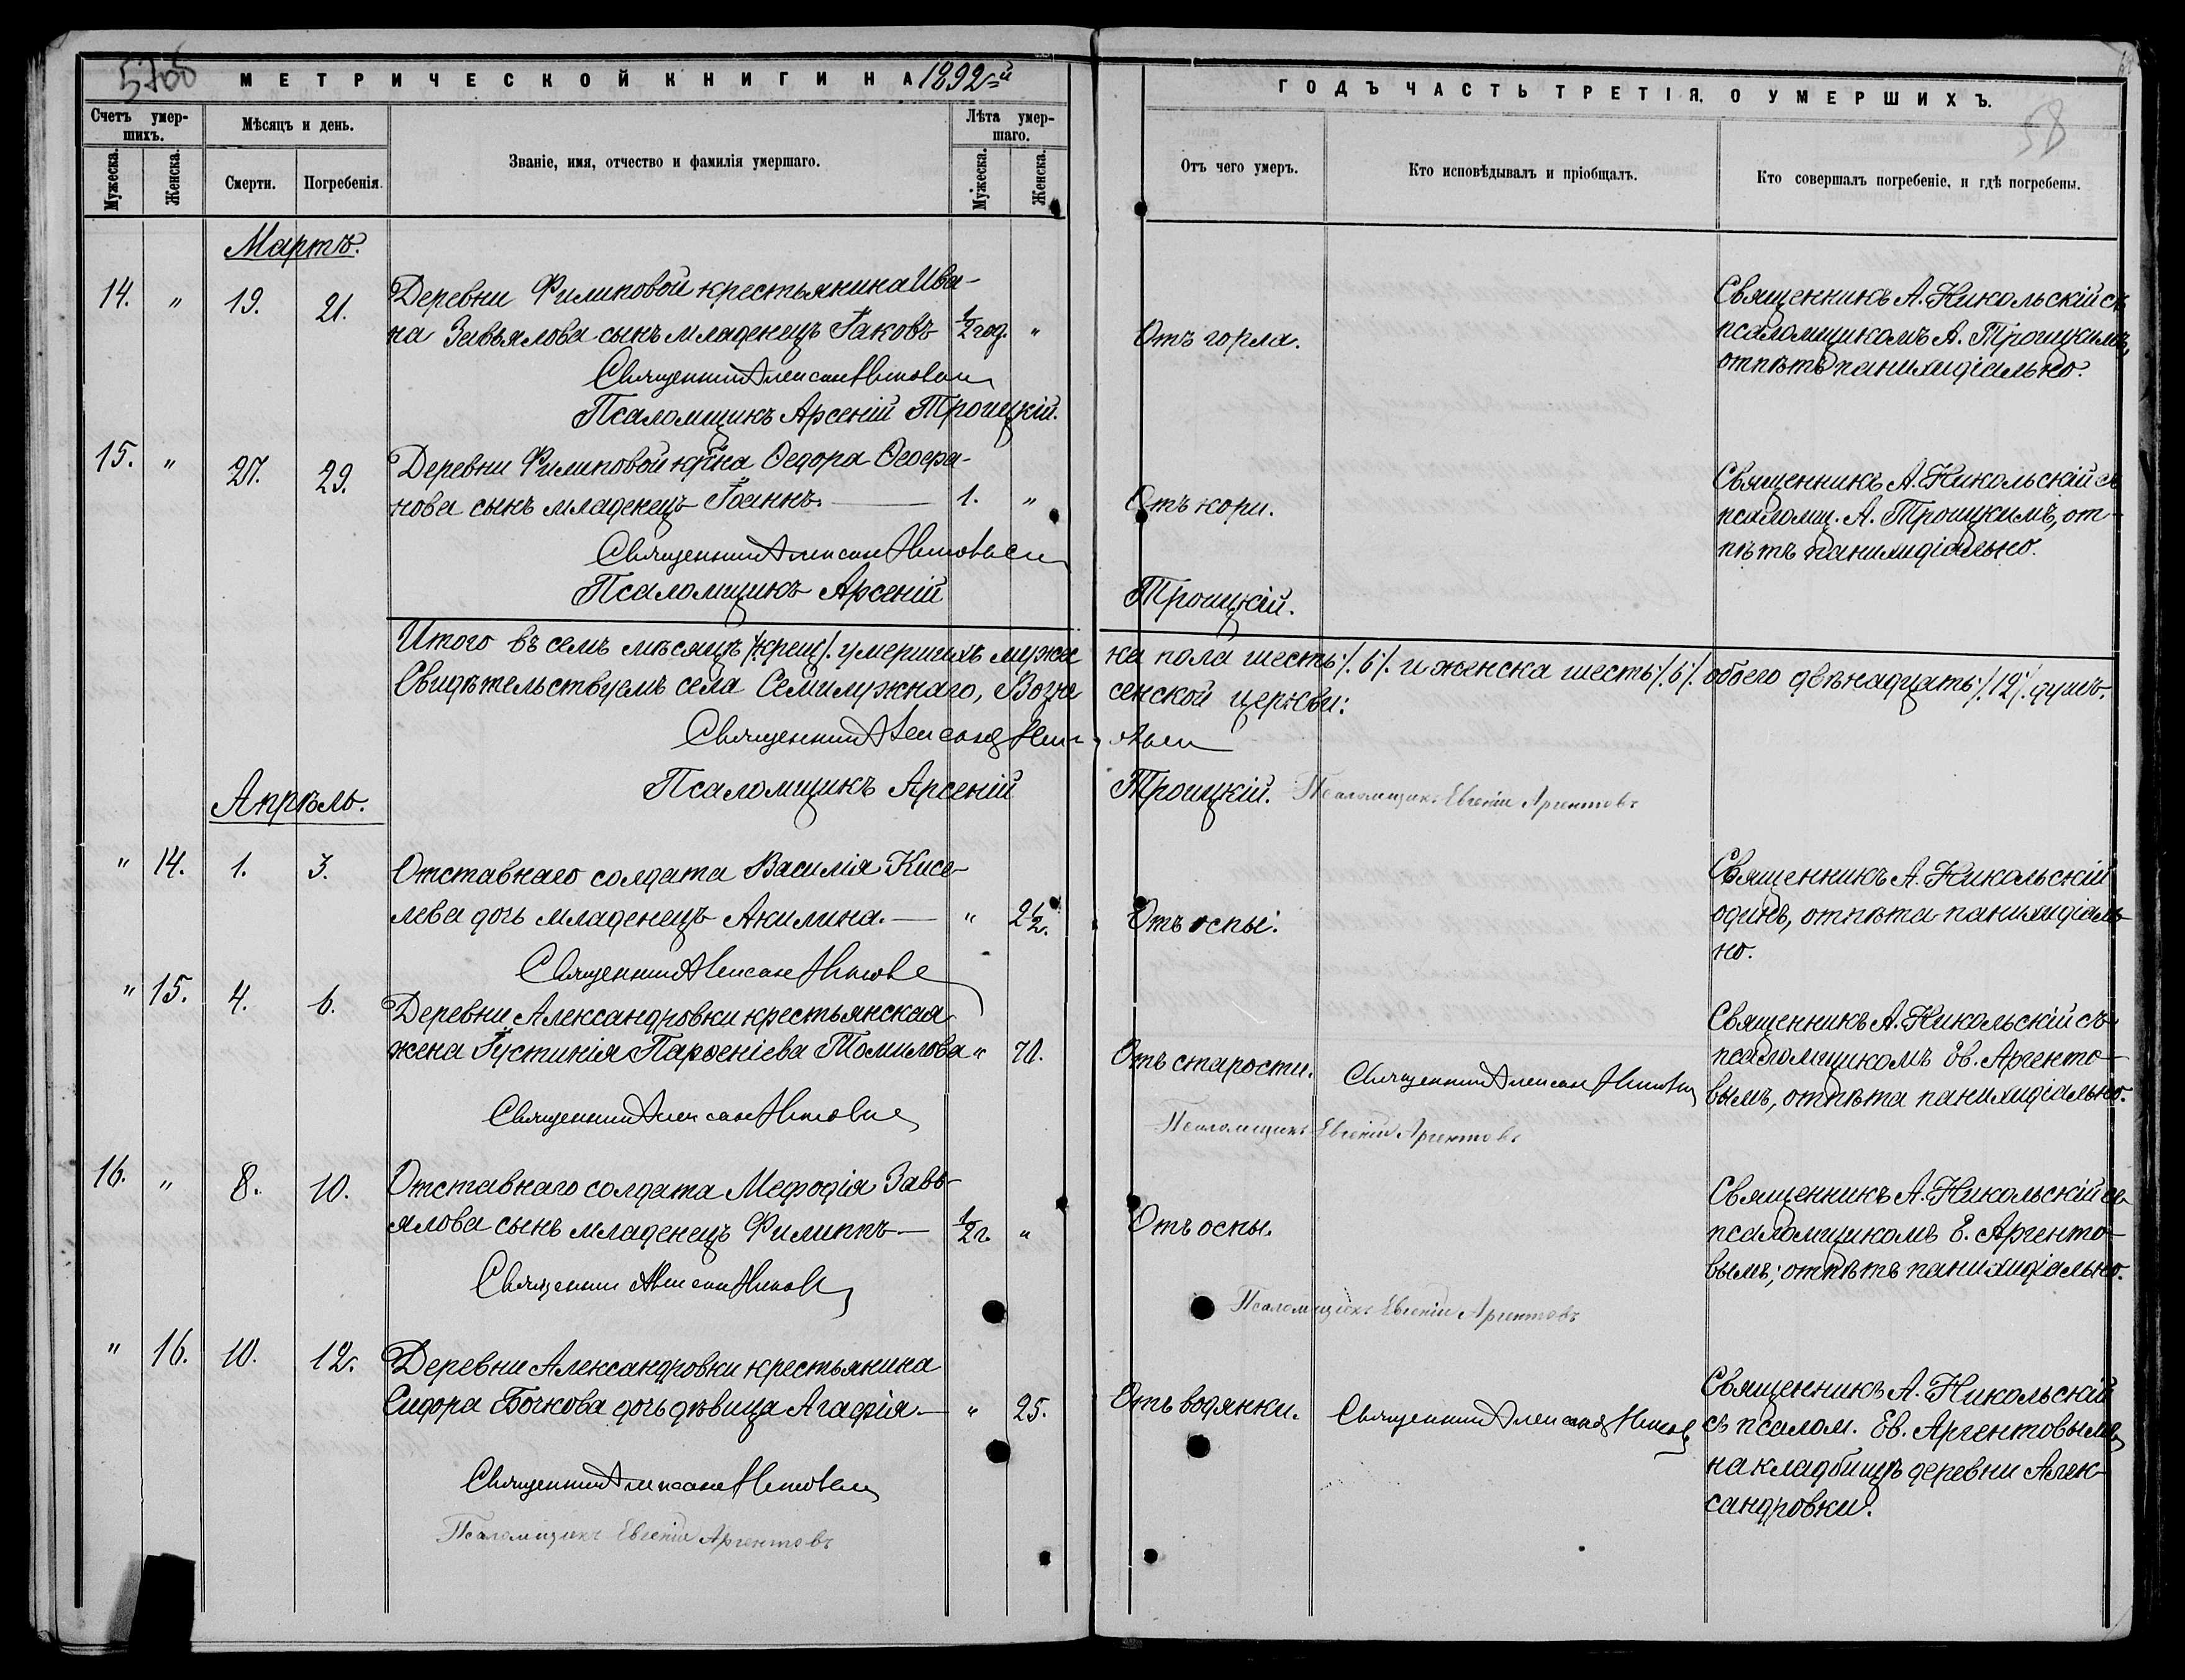 МЕТРИЧЕСКОЙ КНИГИ НА 1892-й
ГОДЪ ЧАСТЬ ТРЕТІЯ, О УМЕРШИХЪ.
58
Счетъ умер-
шихъ.
Мужеска.
Женска.
Мѣсяцъ и день.
Смерти.
Погребенія.
Званіе, имя, отчество и фамилія умершаго.
Лѣта умер-
шаго.
Мужеска.
Женска.
Отъ чего умеръ.
Кто исповѣдывалъ и пріобщалъ.
Кто совершалъ погребеніе, и гдѣ погребены.
Мартъ.
14. " 19. 21. Деревни Филиповой крестьянина Ива-
на Завьялова сынъ младенецъ Іаковъ ½ год. "
Отъ горла.
Священникъ А. Никольскій съ
псаломщикомъ А. Троицкимъ,
отпѣтъ панихидіально.
Священникъ
Псаломщикъ Арсеній Троицкій.
15. " 27. 29. Деревни Филиповой кр-на Ѳедора Ѳеофа-
нова сынъ младенецъ Іоаннъ. 1. "
Отъ кори.
Священникъ А. Никольскій съ
псаломщ. А. Троицкимъ, от-
пѣтъ панихидіально.
Священникъ
Псаломщикъ Арсеній Троицкій.
Итого въ семъ мѣсяцѣ умершихъ мужеска пола шесть /.6/. и женска шесть /.6/. обоего двѣнадцать /.12/. душъ.
Свидѣтельствуемъ села Семилужнаго, Вознесенской церкви:
Священникъ
Псаломщикъ Арсеній Троицкій. Псаломщикъ Евгеній Аргентовъ
Апрѣль.
" 14. 1. 3. Отставнаго солдата Василія Кисе-
лева дочь младенецъ Акилина. " 2½.
Отъ оспы.
Священникъ А. Никольскій
одинъ, отпѣта панихидіаль-
но.
Священникъ
" 15. 4. 6. Деревни Александровки крестьянская
жена Іустинія Парѳеніева Томилова " 70.
Отъ старости.
Священникъ
Священникъ А. Никольскій съ
псаломщикомъ Ев. Арженто-
вымъ, отпѣта панихидіально.
Священникъ
Псаломщикъ Евгеній Аргентовъ
16. " 8. 10. Отставнаго солдата Меѳодія Завь-
ялова сынъ младенецъ Филиппъ ½ г. "
Отъ оспы.
Священникъ А. Никольскій съ
псаломщикомъ Е. Аргенто-
вымъ, отпѣтъ панихидіально.
Священникъ
Псаломщикъ Евгеній Аргентовъ
" 16. 10. 12. Деревни Александровки крестьянина
Сидора Бочкова дочь дѣвица Агафія " 25.
Отъ водянки.
Священникъ
Священникъ А. Никольскій
съ псалом. Ев. Аргентовымъ
на кладбищѣ деревни Алек-
сандровки.
Священникъ
Псаломщикъ Евгеній Аргентовъ